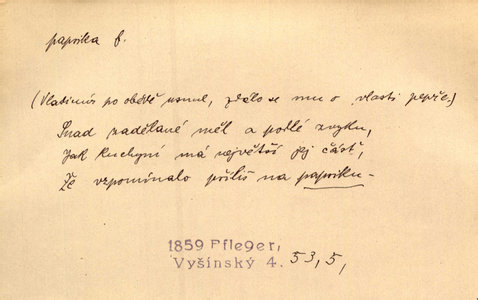 paprika f.
(Vladimír po obědě usnul, zdálo se mu o vlasti pepře.)
Snad zadělané měl a podlé zvyku,
Jak kuchyní má největší jej část,
Že vzpomínalo příliš na papriku-
1859 Pfle9er,
Vyšínský 4. 53,5,